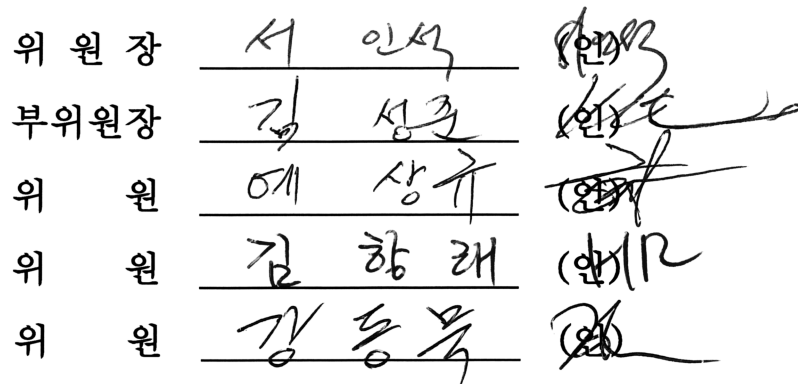 위 원 장 서 인석 (인)
부위원장 김 성준 (인)
위 원 예 상규 (인)
위 원 김 항래 (인)
위 원 강동묵 (인)